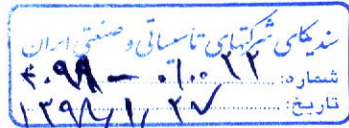 سندیکای شرکتهای تاسیساتی و صنعتی ایران
شماره: ۴۰۹۹ – ۰/۰۰۲۲
تاریخ: ۱۳۹۸/۱/۲۷